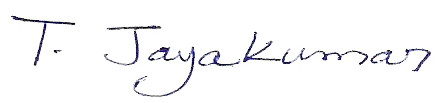 T. Jayakumar